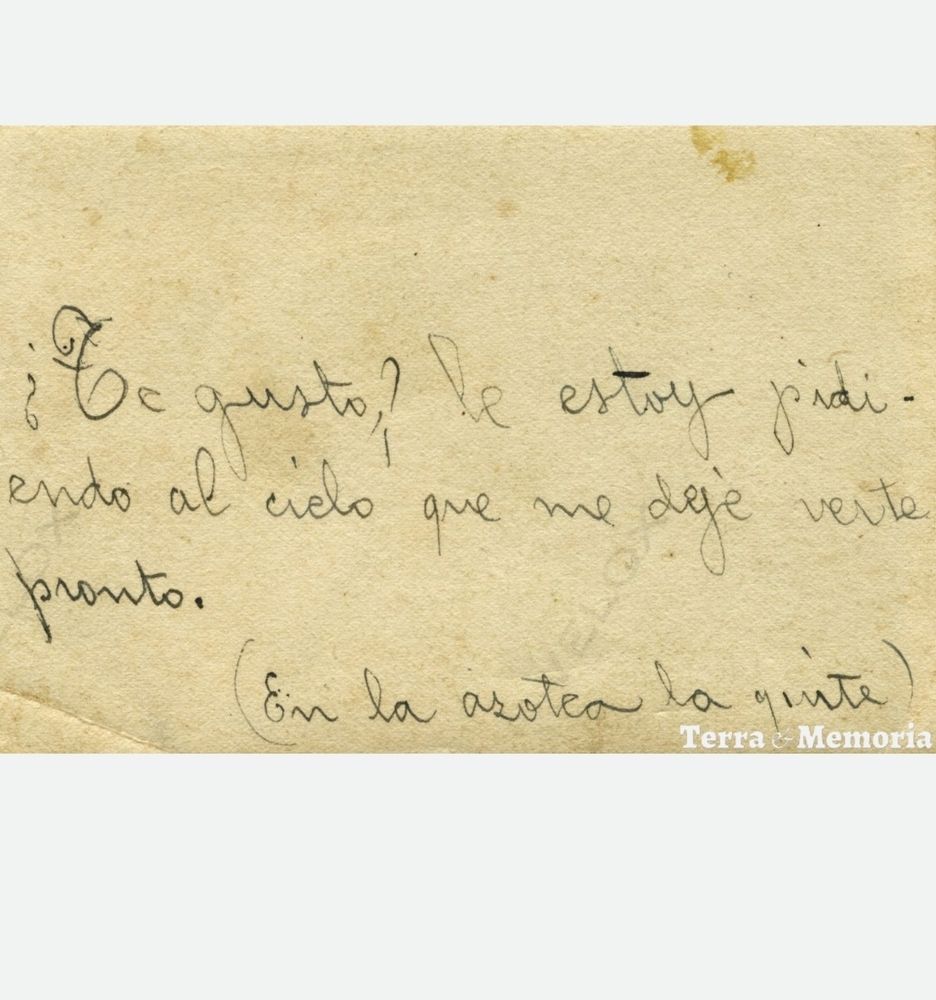 ¿Te gusto,? le estoy pidi-
endo al cielo que me deje verte
pronto.
(En la azotea la pinte)
VELOX
Terra & Memoria